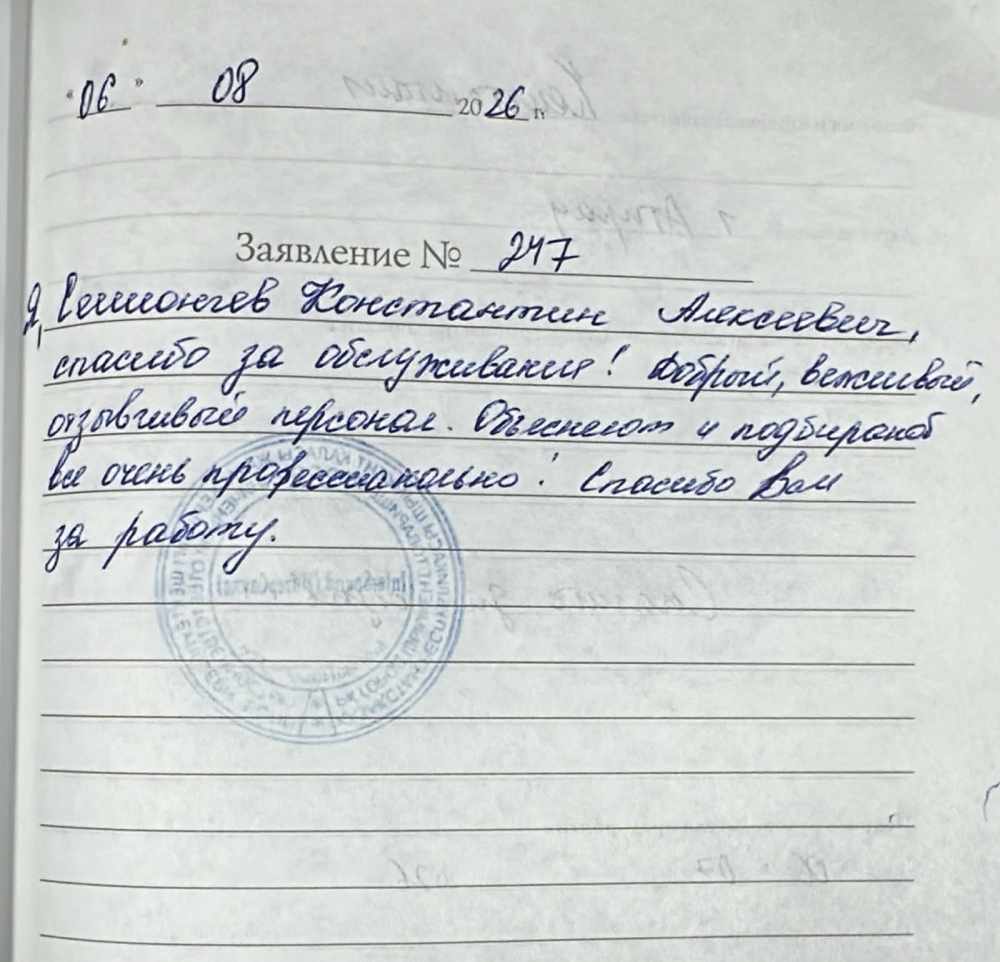 "06" 08 2026 г.
Заявление № 247
Я, Константин Алексеевич,
спасибо за обслуживание! Добрый, вежливый,
отзывчивый персонал. Объясняют и подбирают
все очень профессионально! Спасибо Вам
за работу.